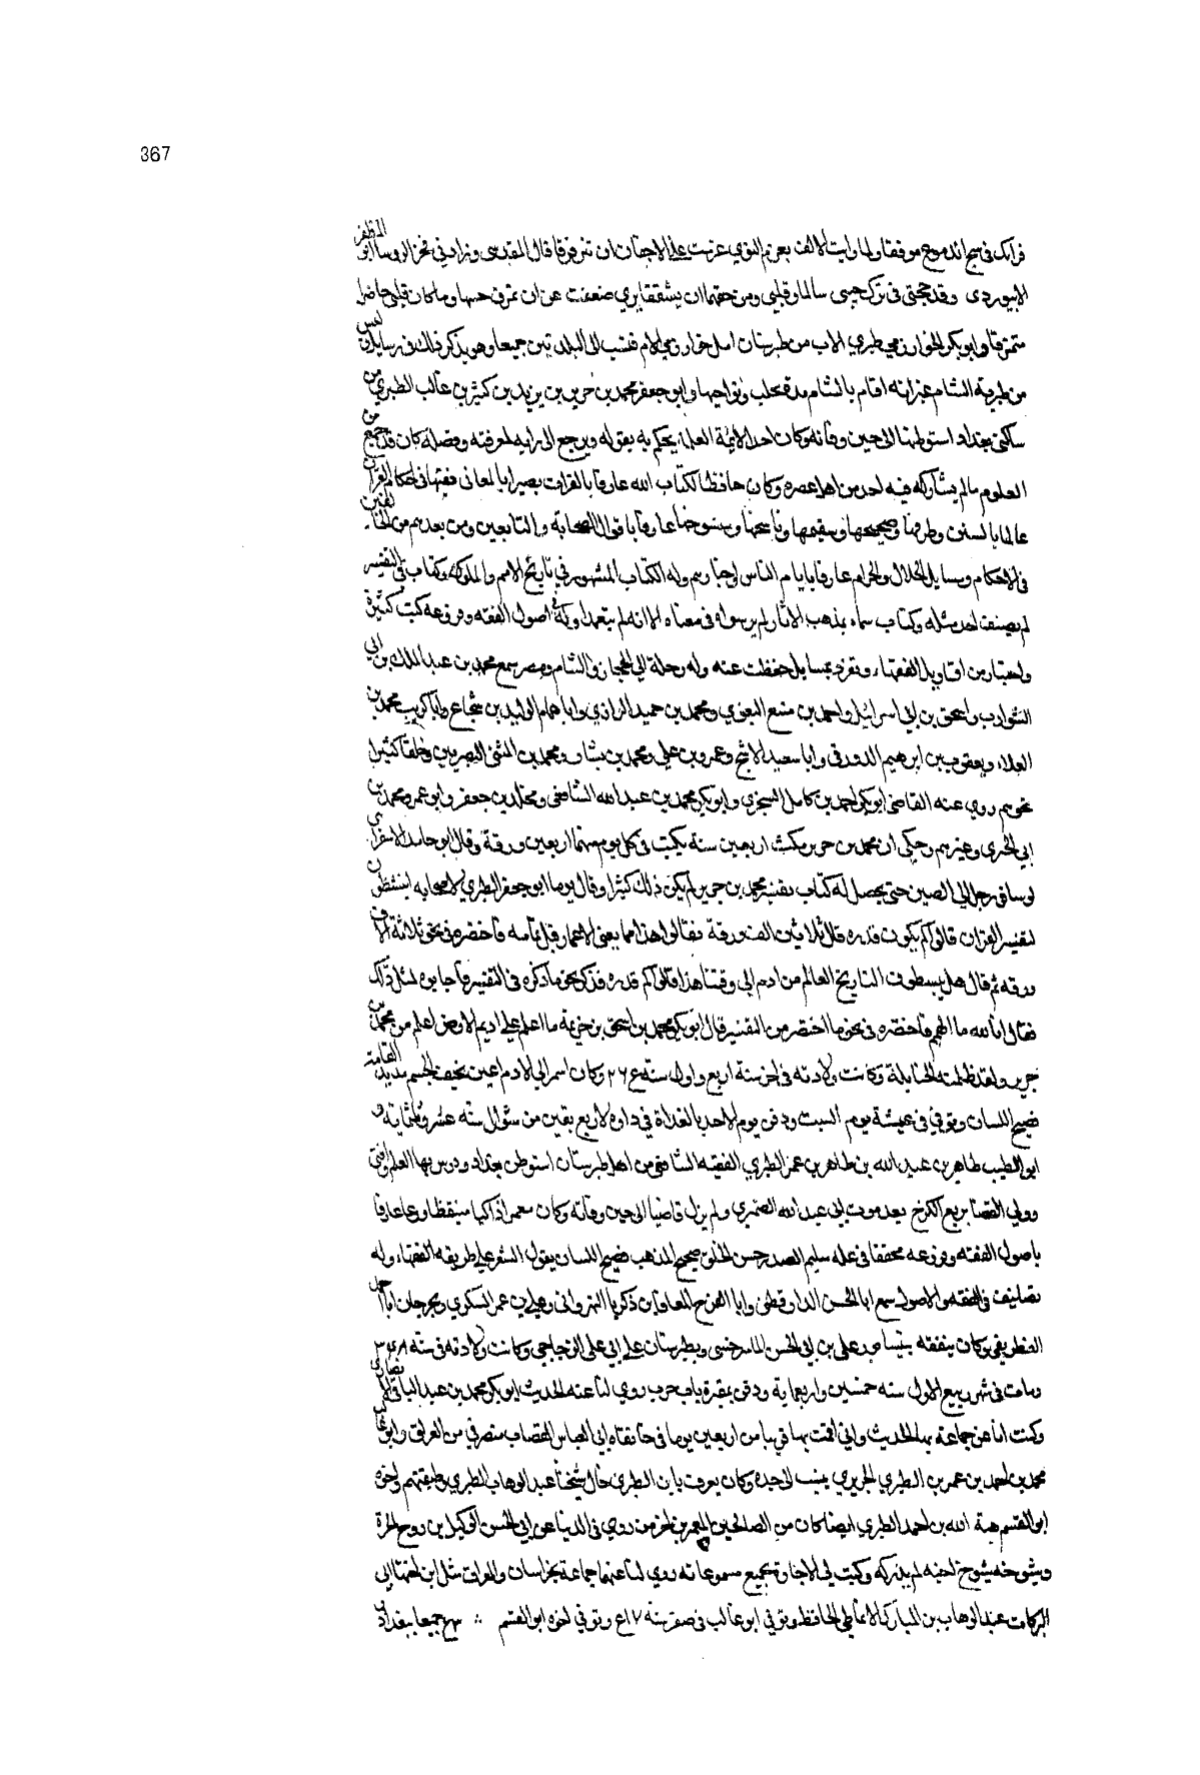 367
الابيوردى وقد حجتى فى ترك جيبى سالما وقلبى ومن حقهما ان يشققا يرى ضعفت عن ان تمزق حبها وما كان قلبى حاضرا
متمزقا وابو بكر الخوارزمي طبري الاب من طبرستان اصل خوارزمي الام فنسب الى البلدتين جميعا وهو يذكر ذلك فى رسايله
من طبرية الشام غير انه اقام بالشام مدة بحلب ونواحيها وابو جعفر محمد بن جرير بن يزيد بن كثير بن غالب الطبري من
ساكنى بغداد استوطنها الى حين وفاته وكان احد الائمة العلماء يحكم به بقوله ويرجع الى رايه لمعرفته وفضله كان قد جمع من
العلوم ما لم يشاركه فيه احد من اهل عصره وكان حافظا لكتاب الله عارفا بالقراات بصيرا بالمعانى فقيها فى احكام القران
عالما بالسنن وطرقها وصحيحها وسقيمها وناسخها ومنسوخها عارفا باقوال الصحابة والتابعين ومن بعدهم من
فى الاحكام ومسايل الحلال والحرام عارفا بايام الناس واخبارهم وله الكتاب المشهور فى تاريخ الامم والملوك وكتاب فى التفسير
لم يصنف احد مثله وكتاب سماه بذهب الاثار لم ير سواه فى معناه الا انه لم يتمه وله فى اصول الفقه وفروعه كتب كثيرة
واختيار من اقاويل الفقهاء وتفرد بمسايل حفظت عنه وله رحلة الى الحجاز والشام ومصر سمع محمد بن عبد الملك بن ابي
الشوارب واسحق بن ابي اسرائيل واحمد بن منيع البغوي ومحمد بن حميد الرازي وابا همام الوليد بن شجاع وابا كريب محمد بن
العلاء ويعقوب بن ابرهيم الدورقى وابا سعيد الاشج وعمرو بن علي ومحمد بن بشار ومحمد بن المثنى البصريين وخلقا كثيرا
نحوهم روي عنه القاضى ابو بكر احمد بن كامل السجزي وابو بكر محمد بن عبد الله الشافعى ومخلد بن جعفر وابو عمرو محمد بن
وغيرهم وحكى ان محمد بن جرير مكث اربعين سنة يكتب فى كل يوم منها اربعين ورقة وقال ابو حامد الاسفرايني
لو سافر رجل الى الصين حتى يحصل له كتاب تفسير محمد بن جرير لم يكن ذلك كثيرا وقال يوما ابو جعفر الطبري لاصحابه اتنشطون
لتفسير القران قالوا كم يكون قدره قال ثلاثين الف ورقة فقالوا هذا مما يفنى الاعمار قبل تمامه فاختصره فى نحو ثلاثة الاف
ورقه ثم قال هل تنبسطون التاريخ العالم من ادم الى وقتنا هذا قالوا كم قدره فذكر نحوما ذكره فى التفسير فاجابوه لمثل ذلك
فقال انا لله ما الهمم فاختصره فى نحو ما اختصر من التفسير قال ابو بكر محمد بن اسحق بن خزيمة ما اعلم على اديم الارض اعلم من محمد بن
جرير ولقد ظلمته الحنابلة وكانت ولادته فى اخر سنة اربع واول سنة وكان اسمر الى الادم اعين نحيف الجسم مديد القامة
فصيح اللسان وتوفي فى عيشة يوم السبت ودفن يوم الاحد بالغداة فى داره لاربع بقين من شوال سنه عشر وثلثماية و
ابو الطيب طاهر بن عبد الله بن طاهر بن عمر الطبري الفقيه الشافعى من اهل طبرستان استوطن بغداد ودرس بها العلم وافتى
وولي القضا بربع الكرخ بعد موت ابي عبد الله الصيمري ولم يزل قاضيا الى حين وفاته وكان معمرا ذاكيا متيقظا ورعا عارفا
باصول الفقه وفروعه محققا فى علمه سليم الصدر حسن الخلق صحيح المذهب فصيح اللسان يقول الشعر على طريقه الفقهاء وله
تصانيف فى الفقه والاصول سمع ابا الحسن الدارقطني وابا الفرج المعافا بن ذكريا النهروانى وعلي بن عمر السكري وبجرجان ابا احمد
الغطريفى وكان تفقه بنيسابور على بن ابي الحسن الماسرخسى وبطبرستان على ابي على الزجاجى وكانت ولادته فى سنه ٣٤٨
ومات فى شهر ربيع الاول سنه خمسين واربعماية ودفن بمقبرة باب حرب روي لنا عنه الحديث ابو بكر محمد بن عبد الباقى الانصاري
وكنت انا عن جماعة بهذا الحديث وانى اقمت بها قريبا من اربعين يوما فى خانقاه ابي العباس القصاب منصرفى من العراق وابو غالب
محمد بن احمد بن عمر بن الطبري الجريري ينسب الى جده وكان يعرف بابن الطبرى خال شيخنا عبد الوهاب الطبري وطبقتهم واخوه
ابو القسم هبة الله بن احمد الطبري ايضا كان من الصالحين المعمرين اخر من روي فى الدنيا عن ابي الحسن الوكيل بن زوج الحرة
وشيوخه شيوخ اخيه لم يدركه وكتب لي الاجازة بجميع مسموعاته روي لنا عنهما جماعة بخراسان والعراق مثل ابن اختهما ابي
البركات عبد الوهاب بن المبارك الانماطى الحافظ وتوفي ابو غالب فى صفر سنه وتوفي اخوه ابو القسم جميعا ببغداد